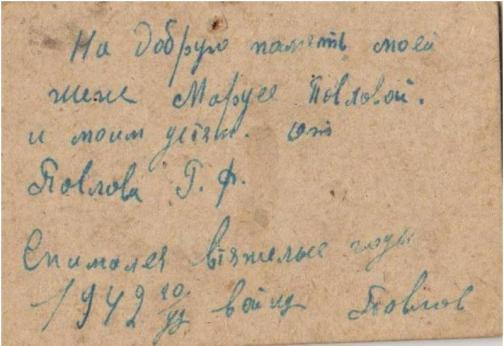 На добрую память моей
жене Марусе Павловой.
и моим детям. от
Павлова Г. Ф.
Снимался втяжелые годы
1942 войны Павлов